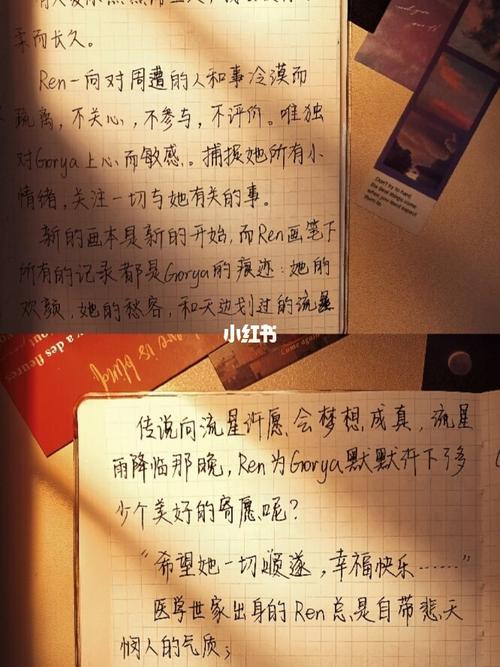 柔而长久。
Ren一向对周遭的人和事冷漠而
疏离，不关心，不参与，不评价。唯独
对Gorya上心而敏感。捕捉她所有小
情绪，关注一切与她有关的事。
新的画本是新的开始，而Ren画笔下
所有的记录都是Gorya的痕迹：她的
欢颜，她的愁容，和天边划过的流星
Don't try to hard
the best things come
when you least expect
them to.
小红书
a des fleures
Come again
传说向流星许愿，会梦想成真，流星
雨降临那晚，Ren为Gorya默默许下了多
少个美好的寄愿呢？
“希望她一切顺遂，幸福快乐……”
医学世家出身的Ren总是自带悲天
悯人的气质；